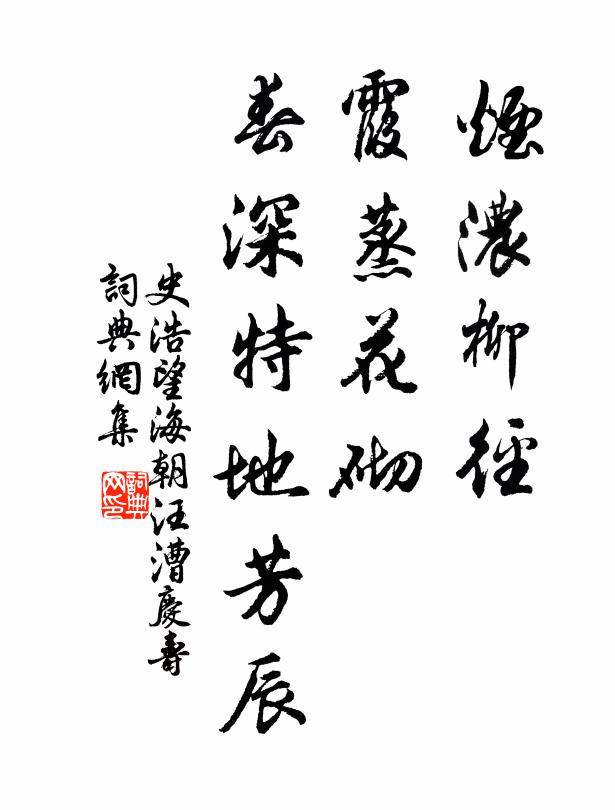 煙濃柳徑
霞蒸花砌
春深特地芳辰
史浩望海朝汪漕慶壽
詞典網集
詞典
网印